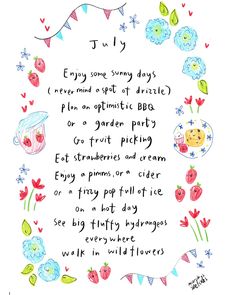 July
Enjoy some sunny days
(never mind a spot of drizzle)
Plan an optimistic BBQ
or a garden party
Go fruit picking
Eat strawberries and cream
Enjoy a pimms, or a cider
or a fizzy pop full of ice
on a hot day
See big fluffy hydrangeas
everywhere
walk in wildflowers